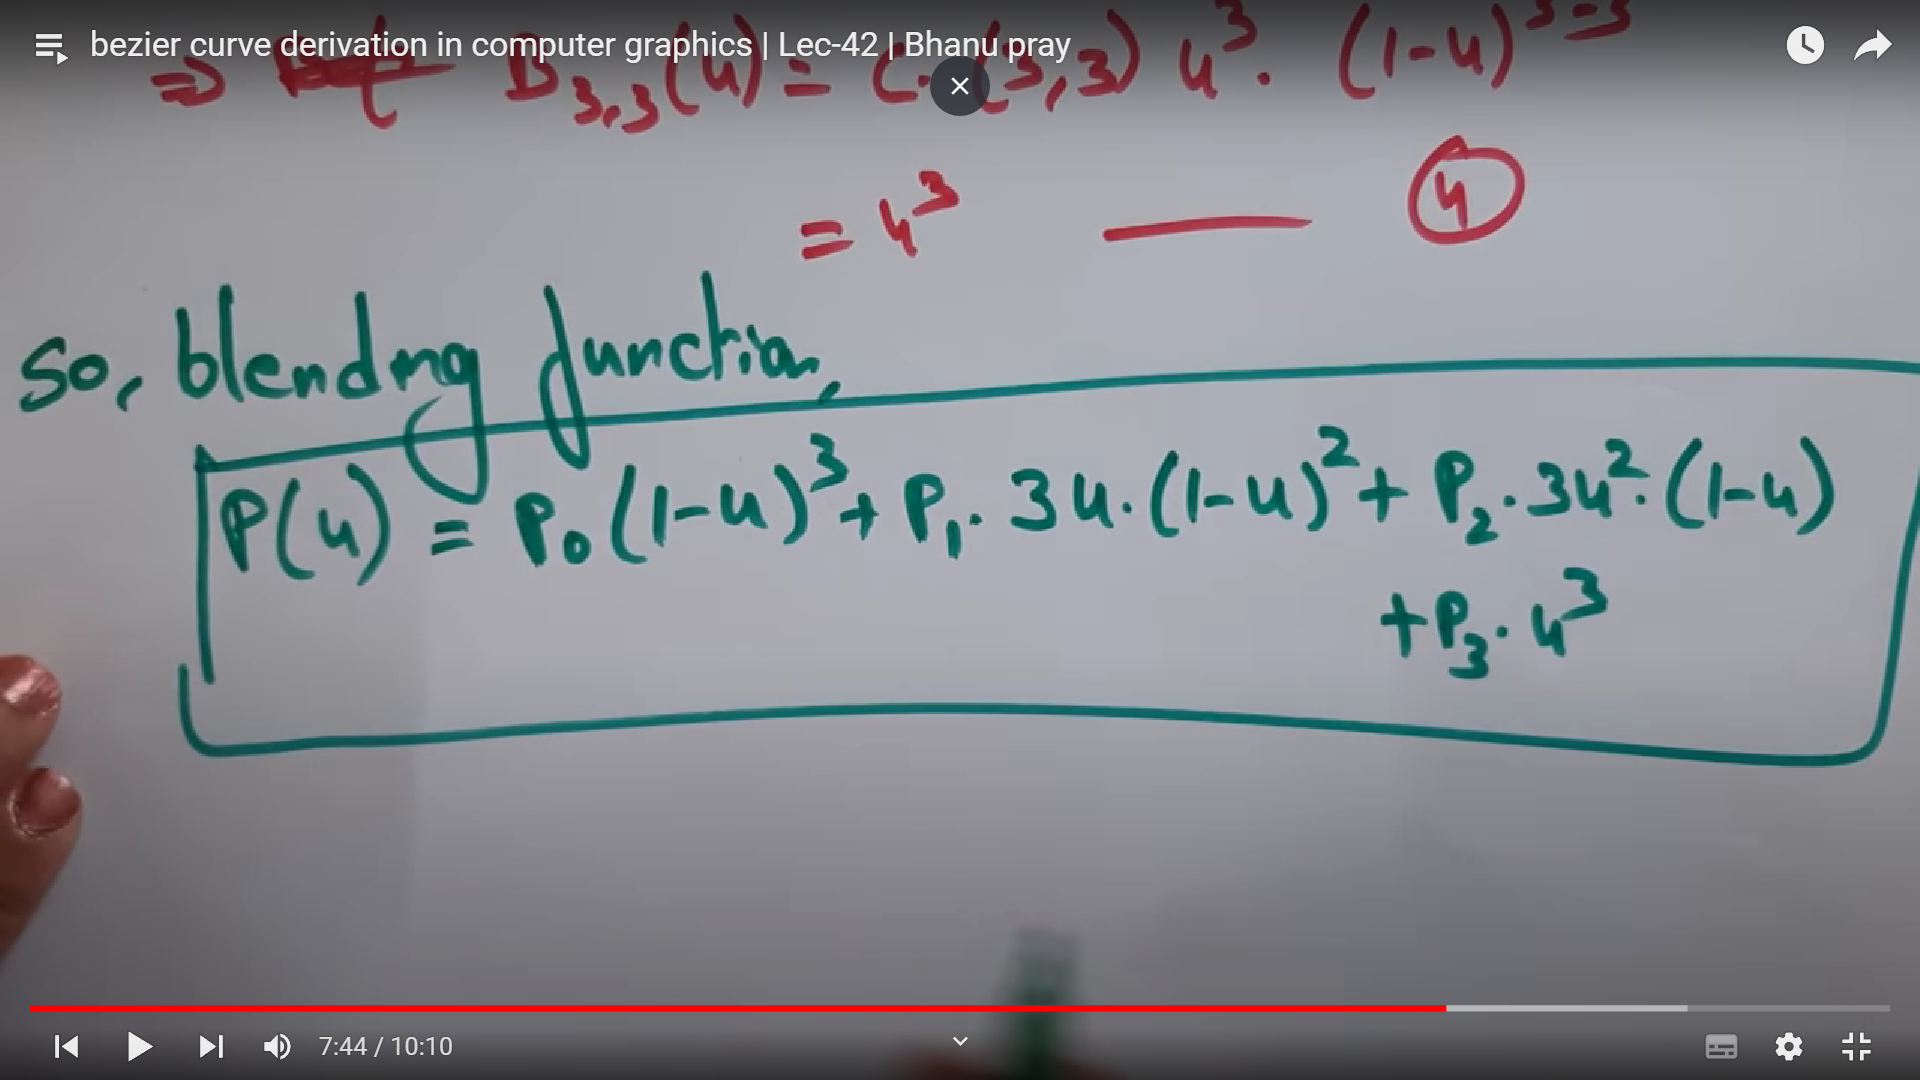 bezier curve derivation in computer graphics | Lec-42 | Bhanu pray
⇒ B₃,₃(u) = C·(3,3) u³. (1-u)³⁻³
= u³ —— ④
So, blending function,
P(u) = P₀(1-u)³ + P₁. 3u.(1-u)² + P₂.3u².(1-u)
+P₃.u³
7:44 / 10:10